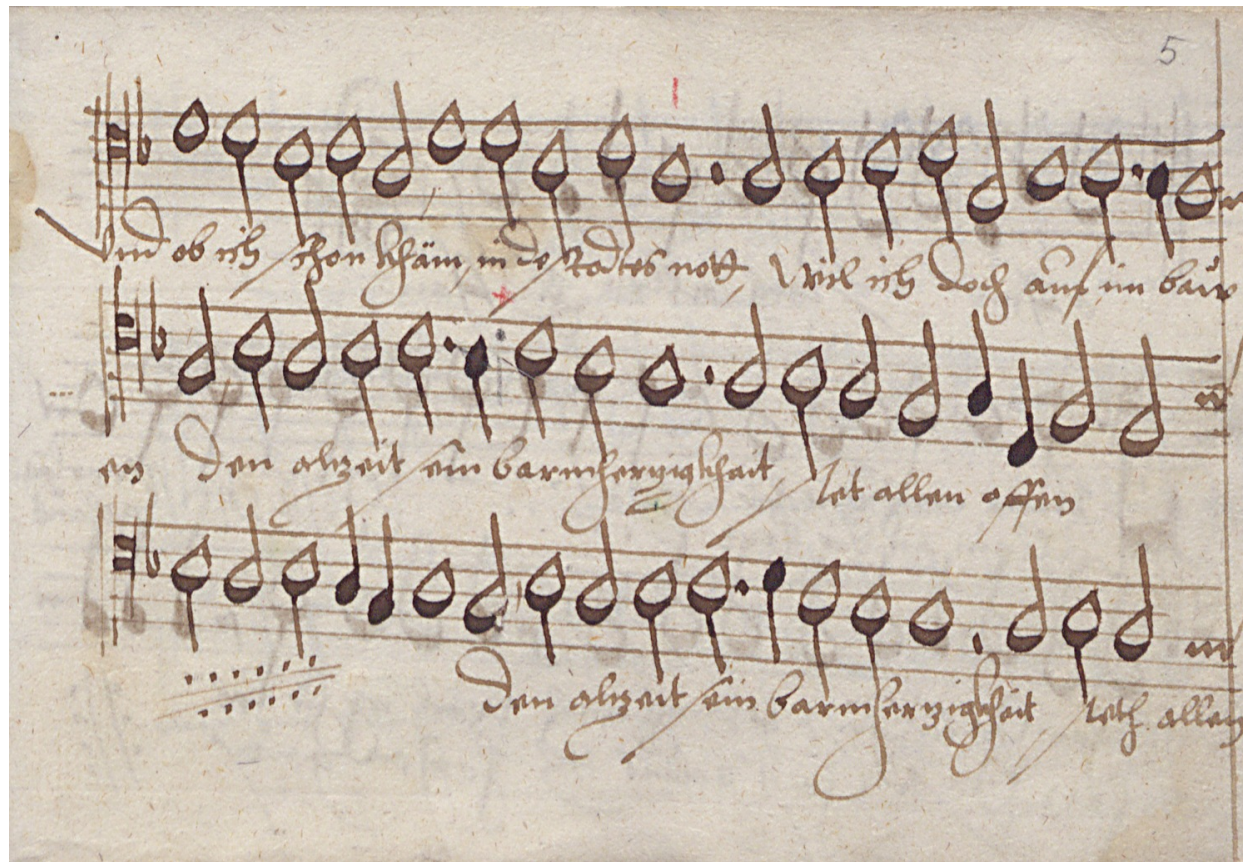 5
Vnd ob ich schon khäm in des Todtes nott, Wil ich doch auf im baw
en den alzeit sein barmherzigkhait stet allen offen
den alzeit sein barmherzigkhait steth allen